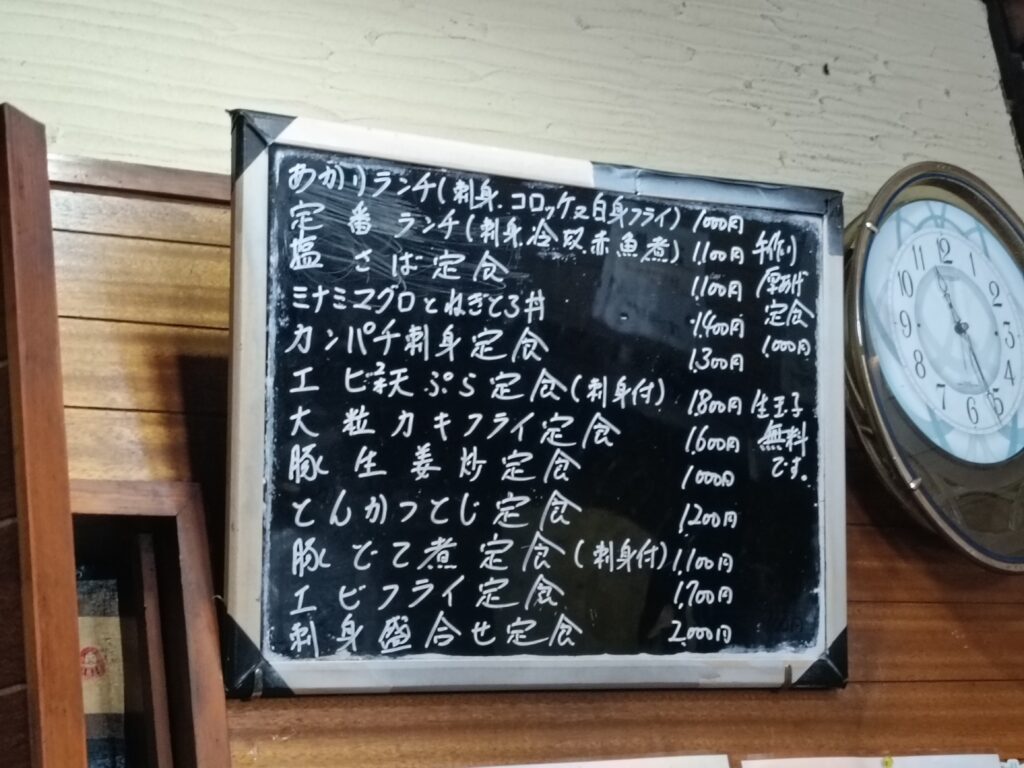 あかりランチ(刺身.コロッケ又白身フライ) 1000円
定番ランチ(刺身.冷奴.赤魚煮) 1,100円
塩さば定食 1,100円
ミナミマグロとねぎとろ丼 1,400円
カンパチ刺身定食 1,300円
エビ天ぷら定食(刺身付) 1,800円
大粒カキフライ定食 1,600円
豚生姜炒定食 1000円
とんかつとじ定食 1,200円
豚でて煮定食(刺身付) 1,100円
エビフライ定食 1,700円
刺身盛合せ定食 2,000円
手作り
厚あげ
定食
1,000円
生玉子
無料
です。
12
1
2
3
4
5
6
7
8
9
10
11